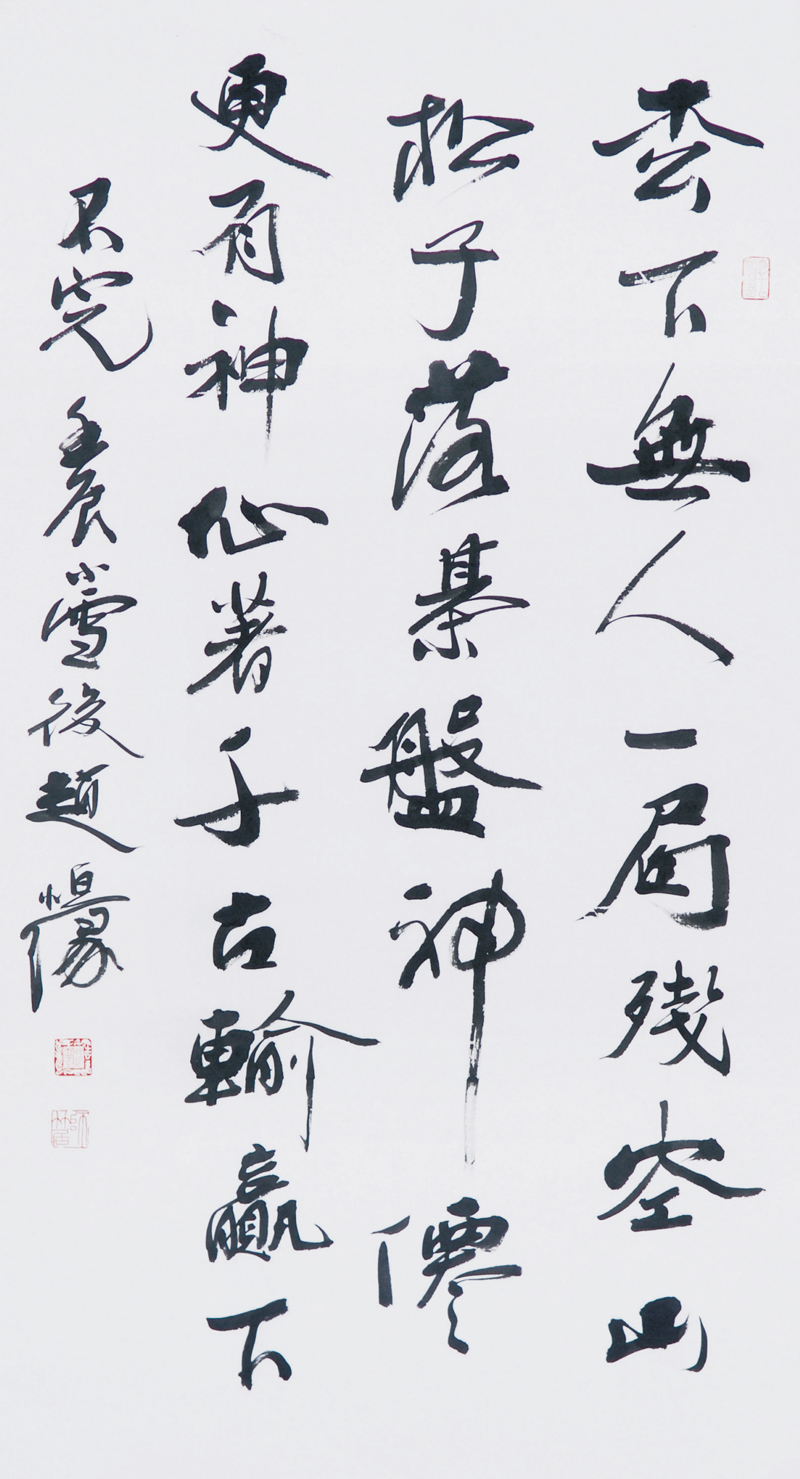 枀下無人一局殘空山
松子落棊盤神僊
更有神仙著千古輸贏下
不完 壬辰小雪後趙